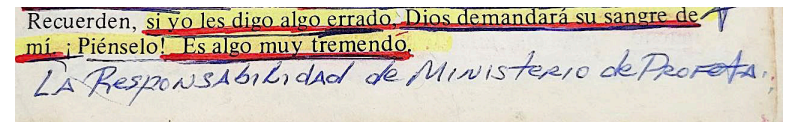 Recuerden, si yo les digo algo errado, Dios demandará su sangre de
mí. ¡Piénselo! Es algo muy tremendo.
LA RESPONSAbiLiDAD de MINISTERIO de PROFETA.